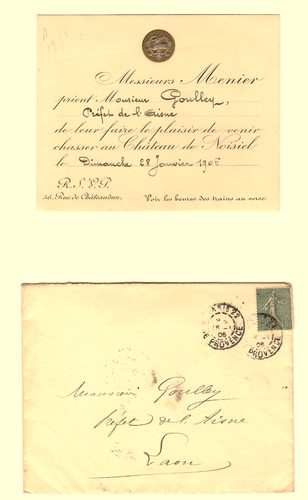 Messieurs Menier
prient Monsieur Goulley,
Préfet de l'Aisne
de leur faire le plaisir de venir
chasser au Château de Noisiel
le Dimanche 28 Janvier 1906
R.S.V.P.
56, Rue de Châteaudun.
Voir les heures des trains au verso.
PARIS 22
06
PROVENCE
06
PROVENCE
Monsieur Goulley
Préfet de l'Aisne
Laon